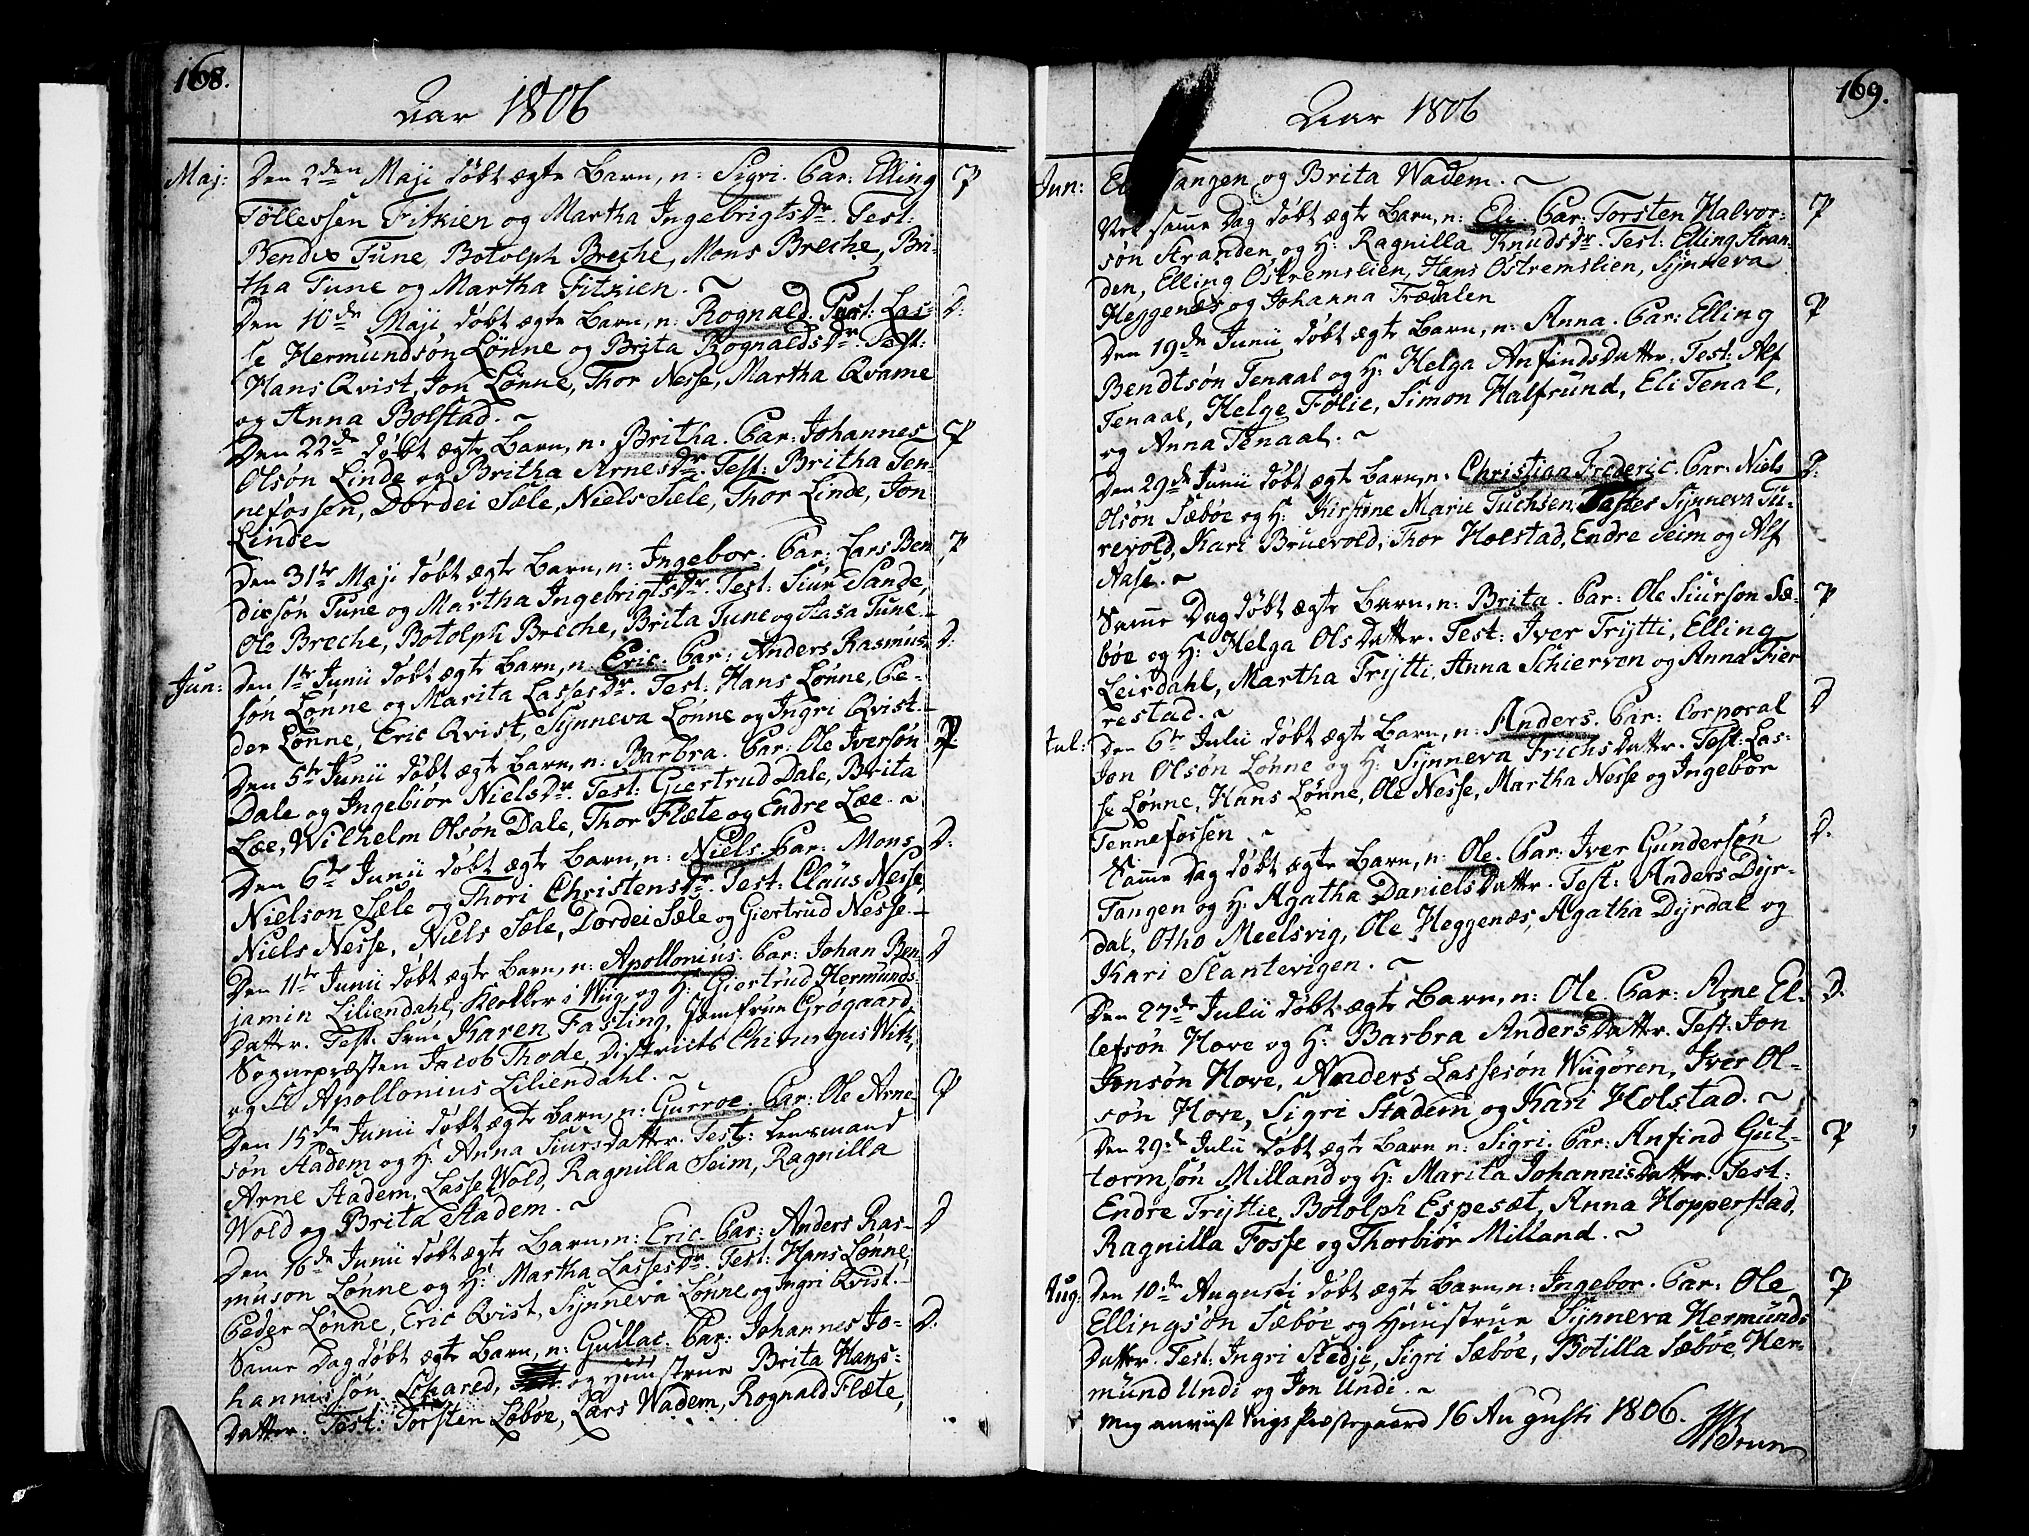 168.
Aar 1806
Maj: Den 2den Maji døbt ægte Barn, n: Sigri. Par: Elling P
Tøllefsen Fitzien og Martha Ingebrigtsdr. Test:
Bendix Tune, Botolph Breche, Mons Breche, Bri-
tha Tune og Martha Fitzien. ~
Den 10de Maji døbt ægte Barn, n: Rognald. Par: Las- D.
se Hermundsøn Lønne og Brita Rognaldsdr. Test:
Hans Qvist, Jon Lønne, Thor Nesse, Martha Qvame
og Anna Bolstad. ~
Den 22de døbt ægte Barn, n: Britha. Par: Johannes P
Olsøn Linde og Britha Arnesdr. Test: Britha Ten-
nefossen, Dordei Sæle, Niels Sæle, Thor Linde, Jon
Linde ~
Den 31te Maji døbt ægte Barn, n: Ingebor. Par: Lars Ben P
dixsøn Tune og Martha Ingebrigtsdr. Test: Siur Sande,
Ole Breche, Botolph Breche, Brita Tune og Aasa Tune. -
Jun: Den 1te Junii døbt ægte Barn, n: Eric. Par: Anders Rasmus- D.
søn Lønne og Marita Lassesdr. Test: Hans Lønne, Pe-
der Lønne, Eric Qvist, Synneva Lønne og Ingri Qvist. -
Den 5te Junii døbt ægte Barn, n: Barbra. Par: Ole Iversøn P
Dale og Ingebiør Nielsdr. Test: Giertrud Dale, Brita
Læe, Wilhelm Olsøn Dale, Thor Flæte og Endre Læe. ~
Den 6te Junii døbt ægte Barn, n: Niels. Par: Mons D.
Nielsøn Sæle og Thori Christensdr. Test: Claus Nesse,
Niels Nesse, Niels Sæle, Dordei Sæle og Giertrud Nesse. -
Den 11te Junii døbt ægte Barn, n: Apollonius. Par: Johan Ben D
jamin Liliendahl, Klokker i Wiig, og H: Giertrud Hermunds-
Datter. Test: Frue Karen Fasting, Jomfrue Grøgaard,
Sognepræsten Jacob Thode, Districts Chirurgus Witt,
og Apollonius Liliendahl. ~
Den 15de Junii døbt ægte Barn, n: Gurroe. Par: Ole Arne- P
søn Stadem og H: Anna Siursdatter. Test: Lensmand
Arne Stadem, Lasse Wold, Ragnilla Seim, Ragnilla
Wold og Brita Stadem. ~
Den 16de Junii døbt ægte Barn, n: Eric. Par: Anders Ras- D
musøn Lønne og H: Martha Lassesdr. Test: Hans Lønne,
Peder Lønne, Eric Qvist, Synneva Lønne, og Ingri Qvist. -
Same Dag døbt ægte Barn, n: Gullac. Par: Johannes Jo- D.
hannessøn og Huustrue Brita Hans-
Datter. Test: Torsten Løbøe, Lars Wadem, Rognald Flæte,
169.
Aar 1806
Jun: Tangen og Brita Wadem. ~
samme Dag døbt ægte Barn, n: Eli. Par: Torsten Halvor- P
søn Stranden og H: Ragnilla Knudsdr. Test: Elling Stran-
den, Elling Ostremslien, Hans Ostremslien, Synneva
Heggenæs og Johanna Trædalen
Den 19de Junii døbt ægte Barn, n: Anna. Par: Elling P
Bendtsøn Tenaal og H: Helga Anfindsdatter. Test: Alf
Tenaal, Helge Følie, Simon Halfrund, Eli Tenal,
og Anna Tenaal. ~
Den 29de Junii døbt ægte Barn, n: Christian Frederic. Par: Niels D.
Olsøn Sæbøe og H: Kirstine Marie Tuchsen, Synneva Tu-
revold, Kari Bruevold, Thor Holstad, Endre Seim og Alf
Aase. ~
Samme Dag døbt ægte Barn, n: Brita. Par: Ole Siursøn Sæ- P
bøe og H: Helga Olsdatter. Test: Iver Trytti, Elling
Leirdahl, Martha Trytti, Anna Schierven og Anna Fier
restad. ~
Jul: Den 6te Julii døbt ægte Barn, n: Anders. Par: Corporal D
Jon Olsøn Lønne og H: Synneva Erichsdatter. Test: Las-
se Lønne, Hans Lønne, Ole Nesse, Martha Nesse og Ingebor
Tennefossen. ~
Samme Dag døbt ægte Barn, n: Ole. Par: Iver Gundersøn D.
Tangen og H: Agatha Danielsdatter. Test: Anders Dyr-
dal, Otho Meelsvig, Ole Heggenæs, Agatha Dyrdal og
Kari Slantevigen. ~
Den 27de Julii døbt ægte Barn, n: Ole. Par: Arne El- D.
lefsøn Hove og H: Barbra Andersdatter. Test: Jon
Jonsøn Hove, Anders Lassesøn Wugøren, Iver Ol-
søn Hove, Sigri Stadem og Kari Holstad. ~
Den 29de Julii døbt ægte Barn n: Sigri. Par: Anfind Gut- P
tormsøn Milland og H: Marita Johannisdatter. Test:
Endre Tryttie, Botolph Espesæt, Anna Hopperstad,
Ragnilla Fosse og Thorbiør Milland. ~
Aug: Den 10de Augusti døbt ægte Barn, n: Ingebor. Par: Ole P
Ellingsøn Sæbøe og Huustrue Synneva Hermunds
Datter. Test: Ingri Stedje, Sigri Sæbøe, Botilla Sæbøe, Her-
mund Undi og Jon Undi. ~
Mig anviist Viigs Præstegaard 16 Augusti 1806.
Brun